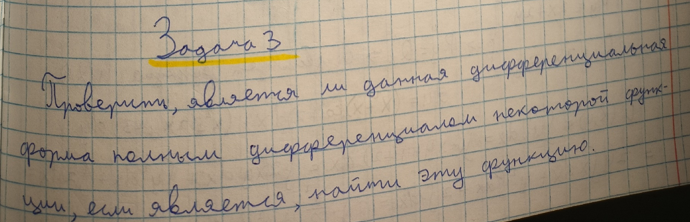 Задача 3
Проверить, является ли данная дифференциальная
форма полным дифференциалом некоторой функ-
ции, если является, найти эту функцию.